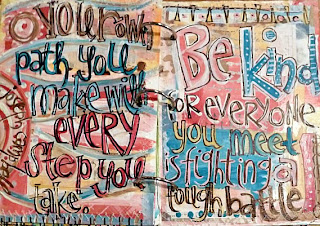 Your own
path you
make with
every
step you
take.
Be kind
for everyone
you meet
is fighting a
tough battle